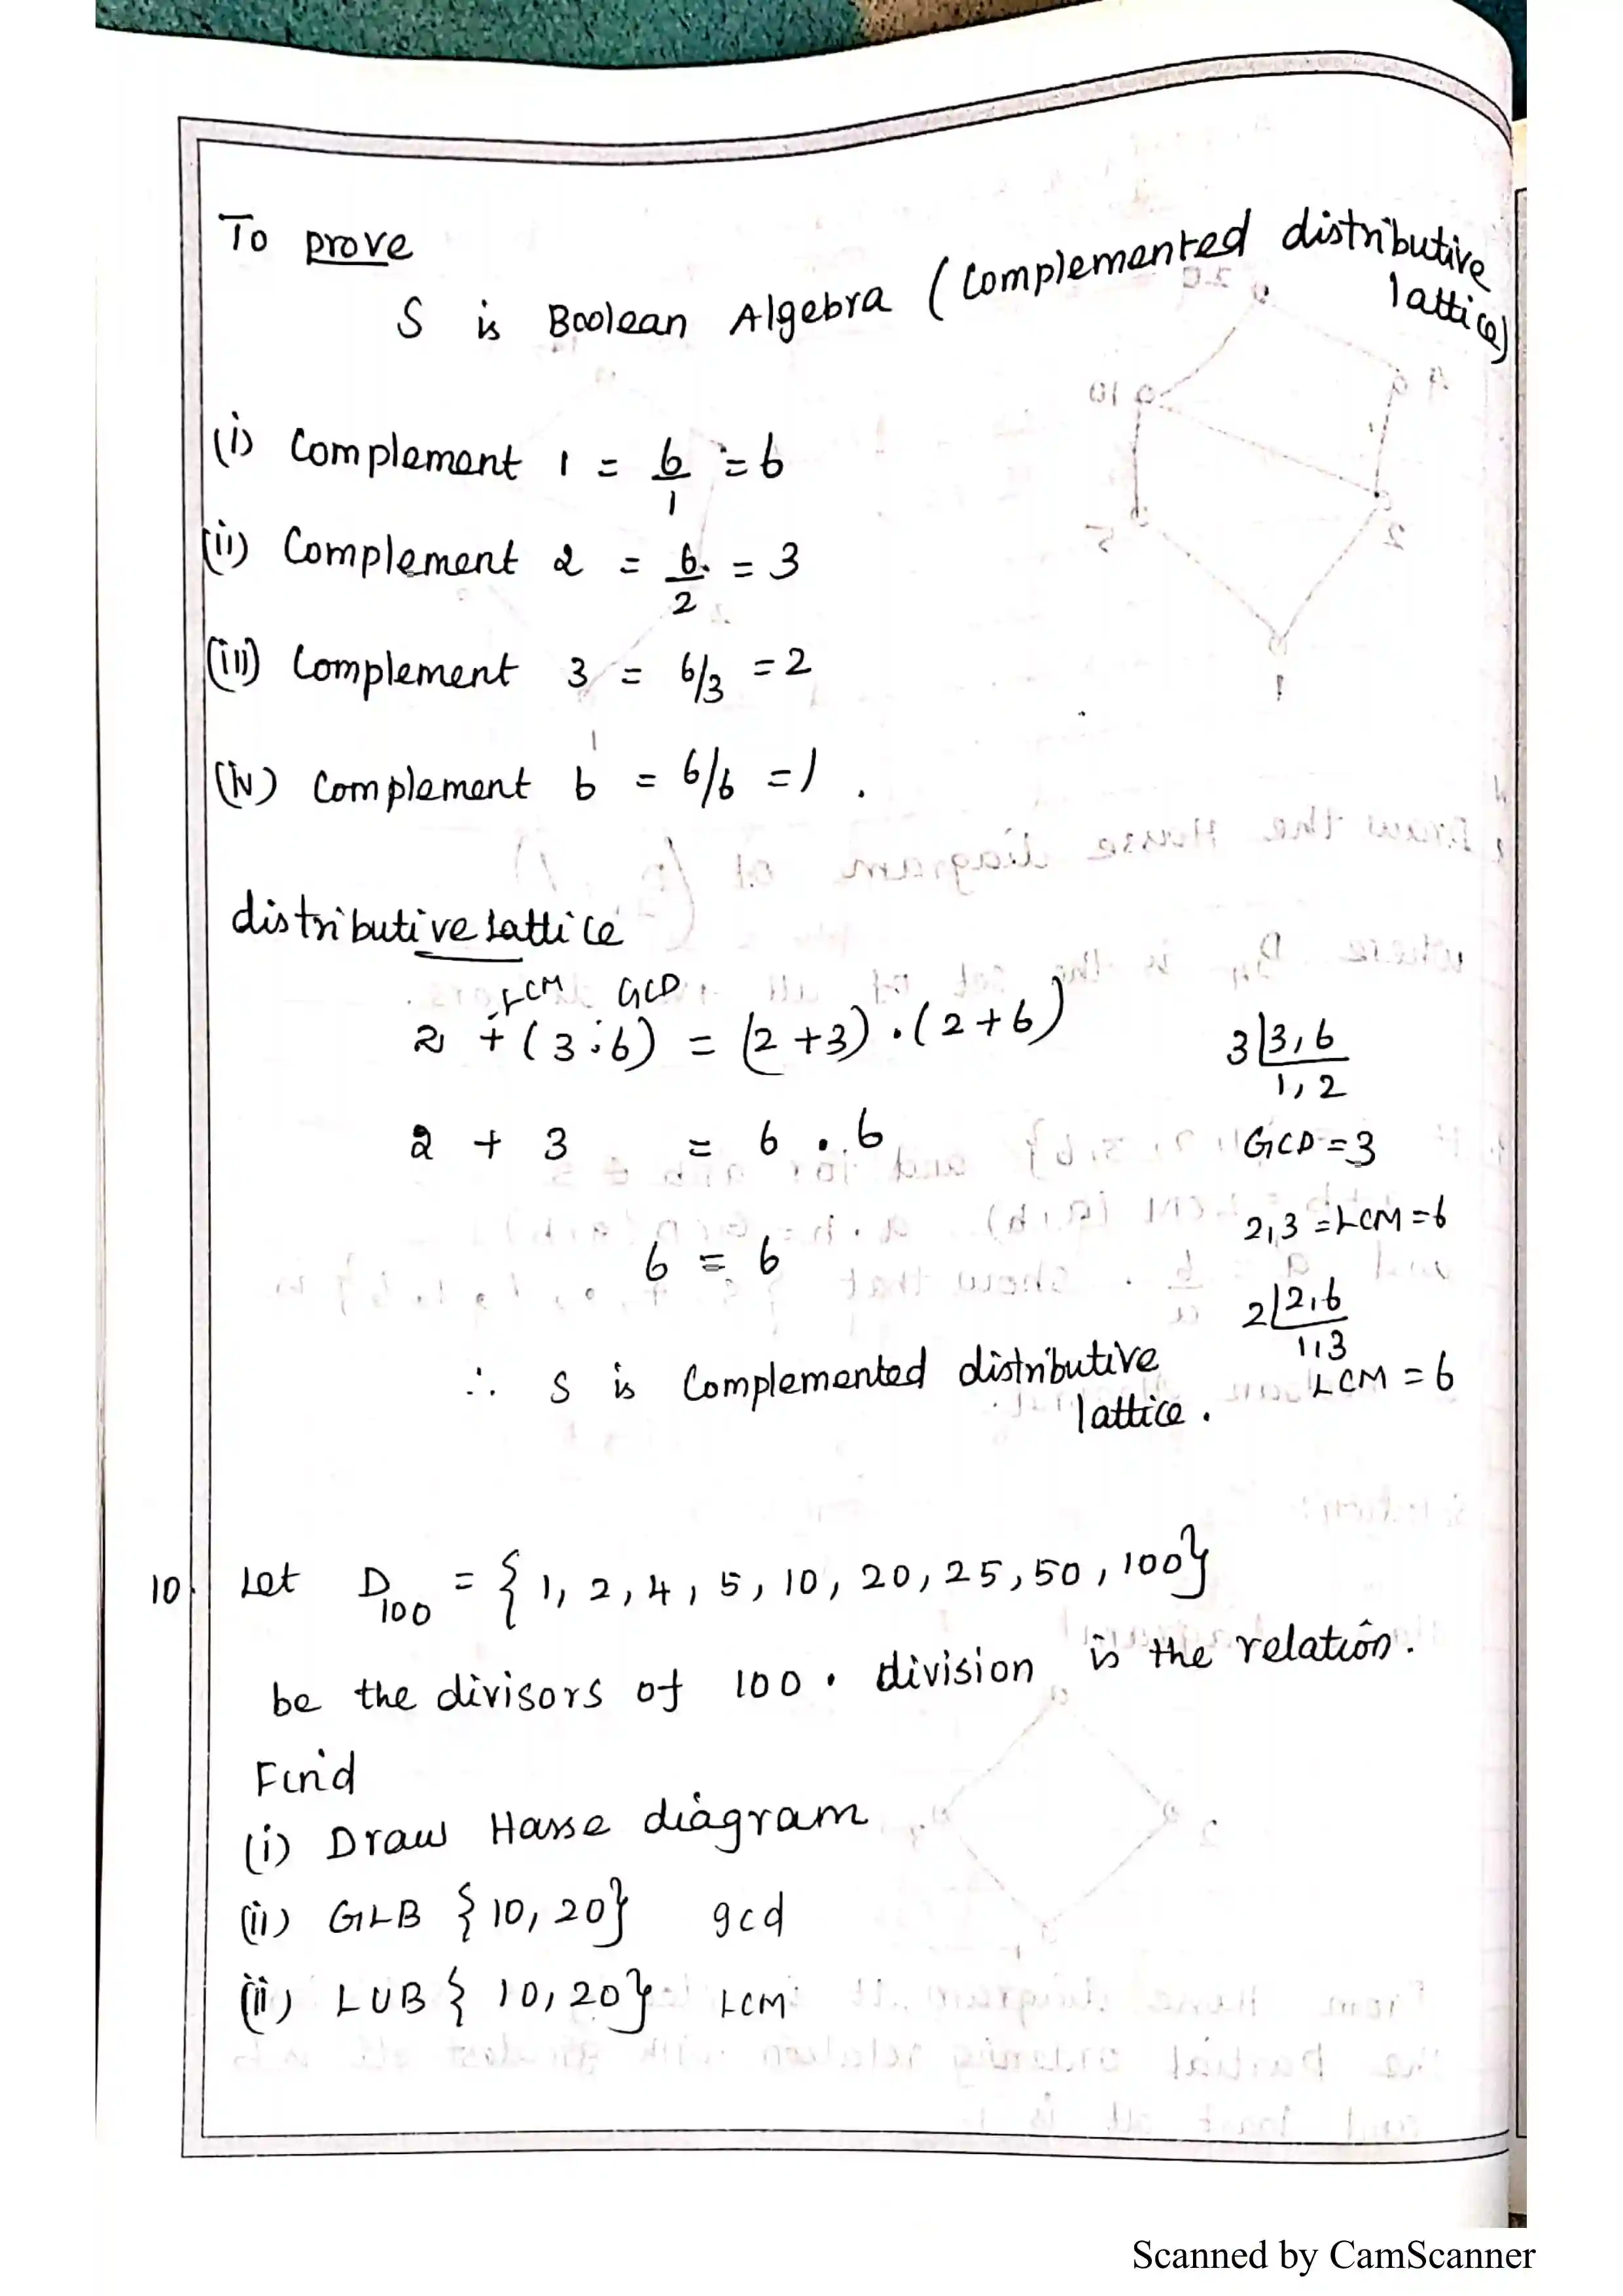 To prove
S is Boolean Algebra (Complemented distributive lattice)
(i) Complement 1 = 6/1 = 6
(ii) Complement 2 = 6/2 = 3
(iii) Complement 3 = 6/3 = 2
(iv) Complement 6 = 6/6 = 1.
distributive lattice
LCM GCD
2 + (3 . 6) = (2 + 3) . (2 + 6)
3 | 3, 6
1, 2
2 + 3 = 6 . 6
GCD = 3
2, 3 = LCM = 6
6 = 6
2 | 2, 6
1, 3
LCM = 6
∴ S is Complemented distributive lattice.
10. Let D100 = { 1, 2, 4, 5, 10, 20, 25, 50, 100}
be the divisors of 100. division is the relation.
Find
(i) Draw Hasse diagram
(ii) GLB { 10, 20} gcd
(ii) LUB { 10, 20} LCM
Scanned by CamScanner